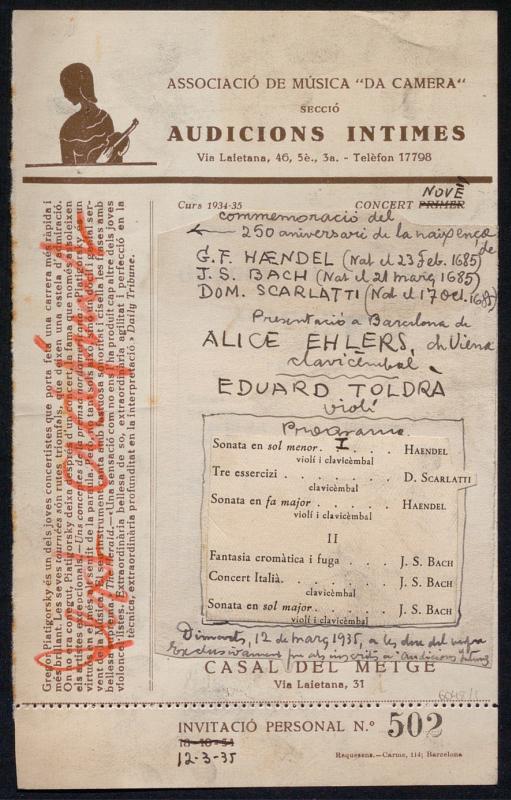 ASSOCIACIÓ DE MÚSICA "DA CAMERA"
SECCIÓ
AUDICIONS INTIMES
Via Laietana, 46, 5è., 3a. - Telèfon 17798
Curs 1934-35
CONCERT PRIMER
NOVÈ
commemoració del
250 aniversari de la naixença de
G. F. HÆNDEL (Nat el 23 feb. 1685)
J. S. BACH (Nat el 21 març 1685)
DOM. SCARLATTI (Nat el 17 oct. 1685)
Presentació a Barcelona de
ALICE EHLERS, de Viena
clavicèmbal
EDUARD TOLDRÀ
violí
Programa
I
Sonata en sol menor. . . . . HAENDEL
violí i clavicèmbal
Tre essercizi . . . . . D. SCARLATTI
clavicèmbal
Sonata en fa major . . . . . HAENDEL
violí i clavicèmbal
II
Fantasia cromàtica i fuga . . . . J. S. BACH
Concert Italià. . . . . . J. S. BACH
clavicèmbal
Sonata en sol major. . . . . J. S. BACH
violí i clavicèmbal
Dimarts, 12 de març 1935, a les deu del vespre
Exclusivament per als inscrits a "Audicions Intimes
CASAL DEL METGE
Via Laietana, 31
INVITACIÓ PERSONAL N.º 502
18-10-34
12-3-35
Raquesens.-Carme, 114; Barcelona
Gregor Piatigorsky és un dels joves concertistes que porta feta una carrera més ràpida i
més brillant. Les seves tournées són rutes triomfals, que deixen una estela d'admiració.
On no era conegut, Piatigorsky deixa després d'un concert, la fama que només assoleixen
els artistes excepcionals.—Uns conceptes de la premsa nordamericana: «Piatigorsky és un
virtuós en el més alt sentit de la paraula. Però, no tant sols això, sinó un dòcil i genial ser-
vent de la música. El seu instrument canta amb fastuosa sonoritat i cisella les frases amb
bellesa suprema.» The Herald.—«Una sensació com no ens l'ha produït cap altre dels joves
violoncel·listes. Extraordinària bellesa de so, extraordinària agilitat i perfecció en la
tècnica, extraordinària profunditat en la interpretació.» Daily Tribune.